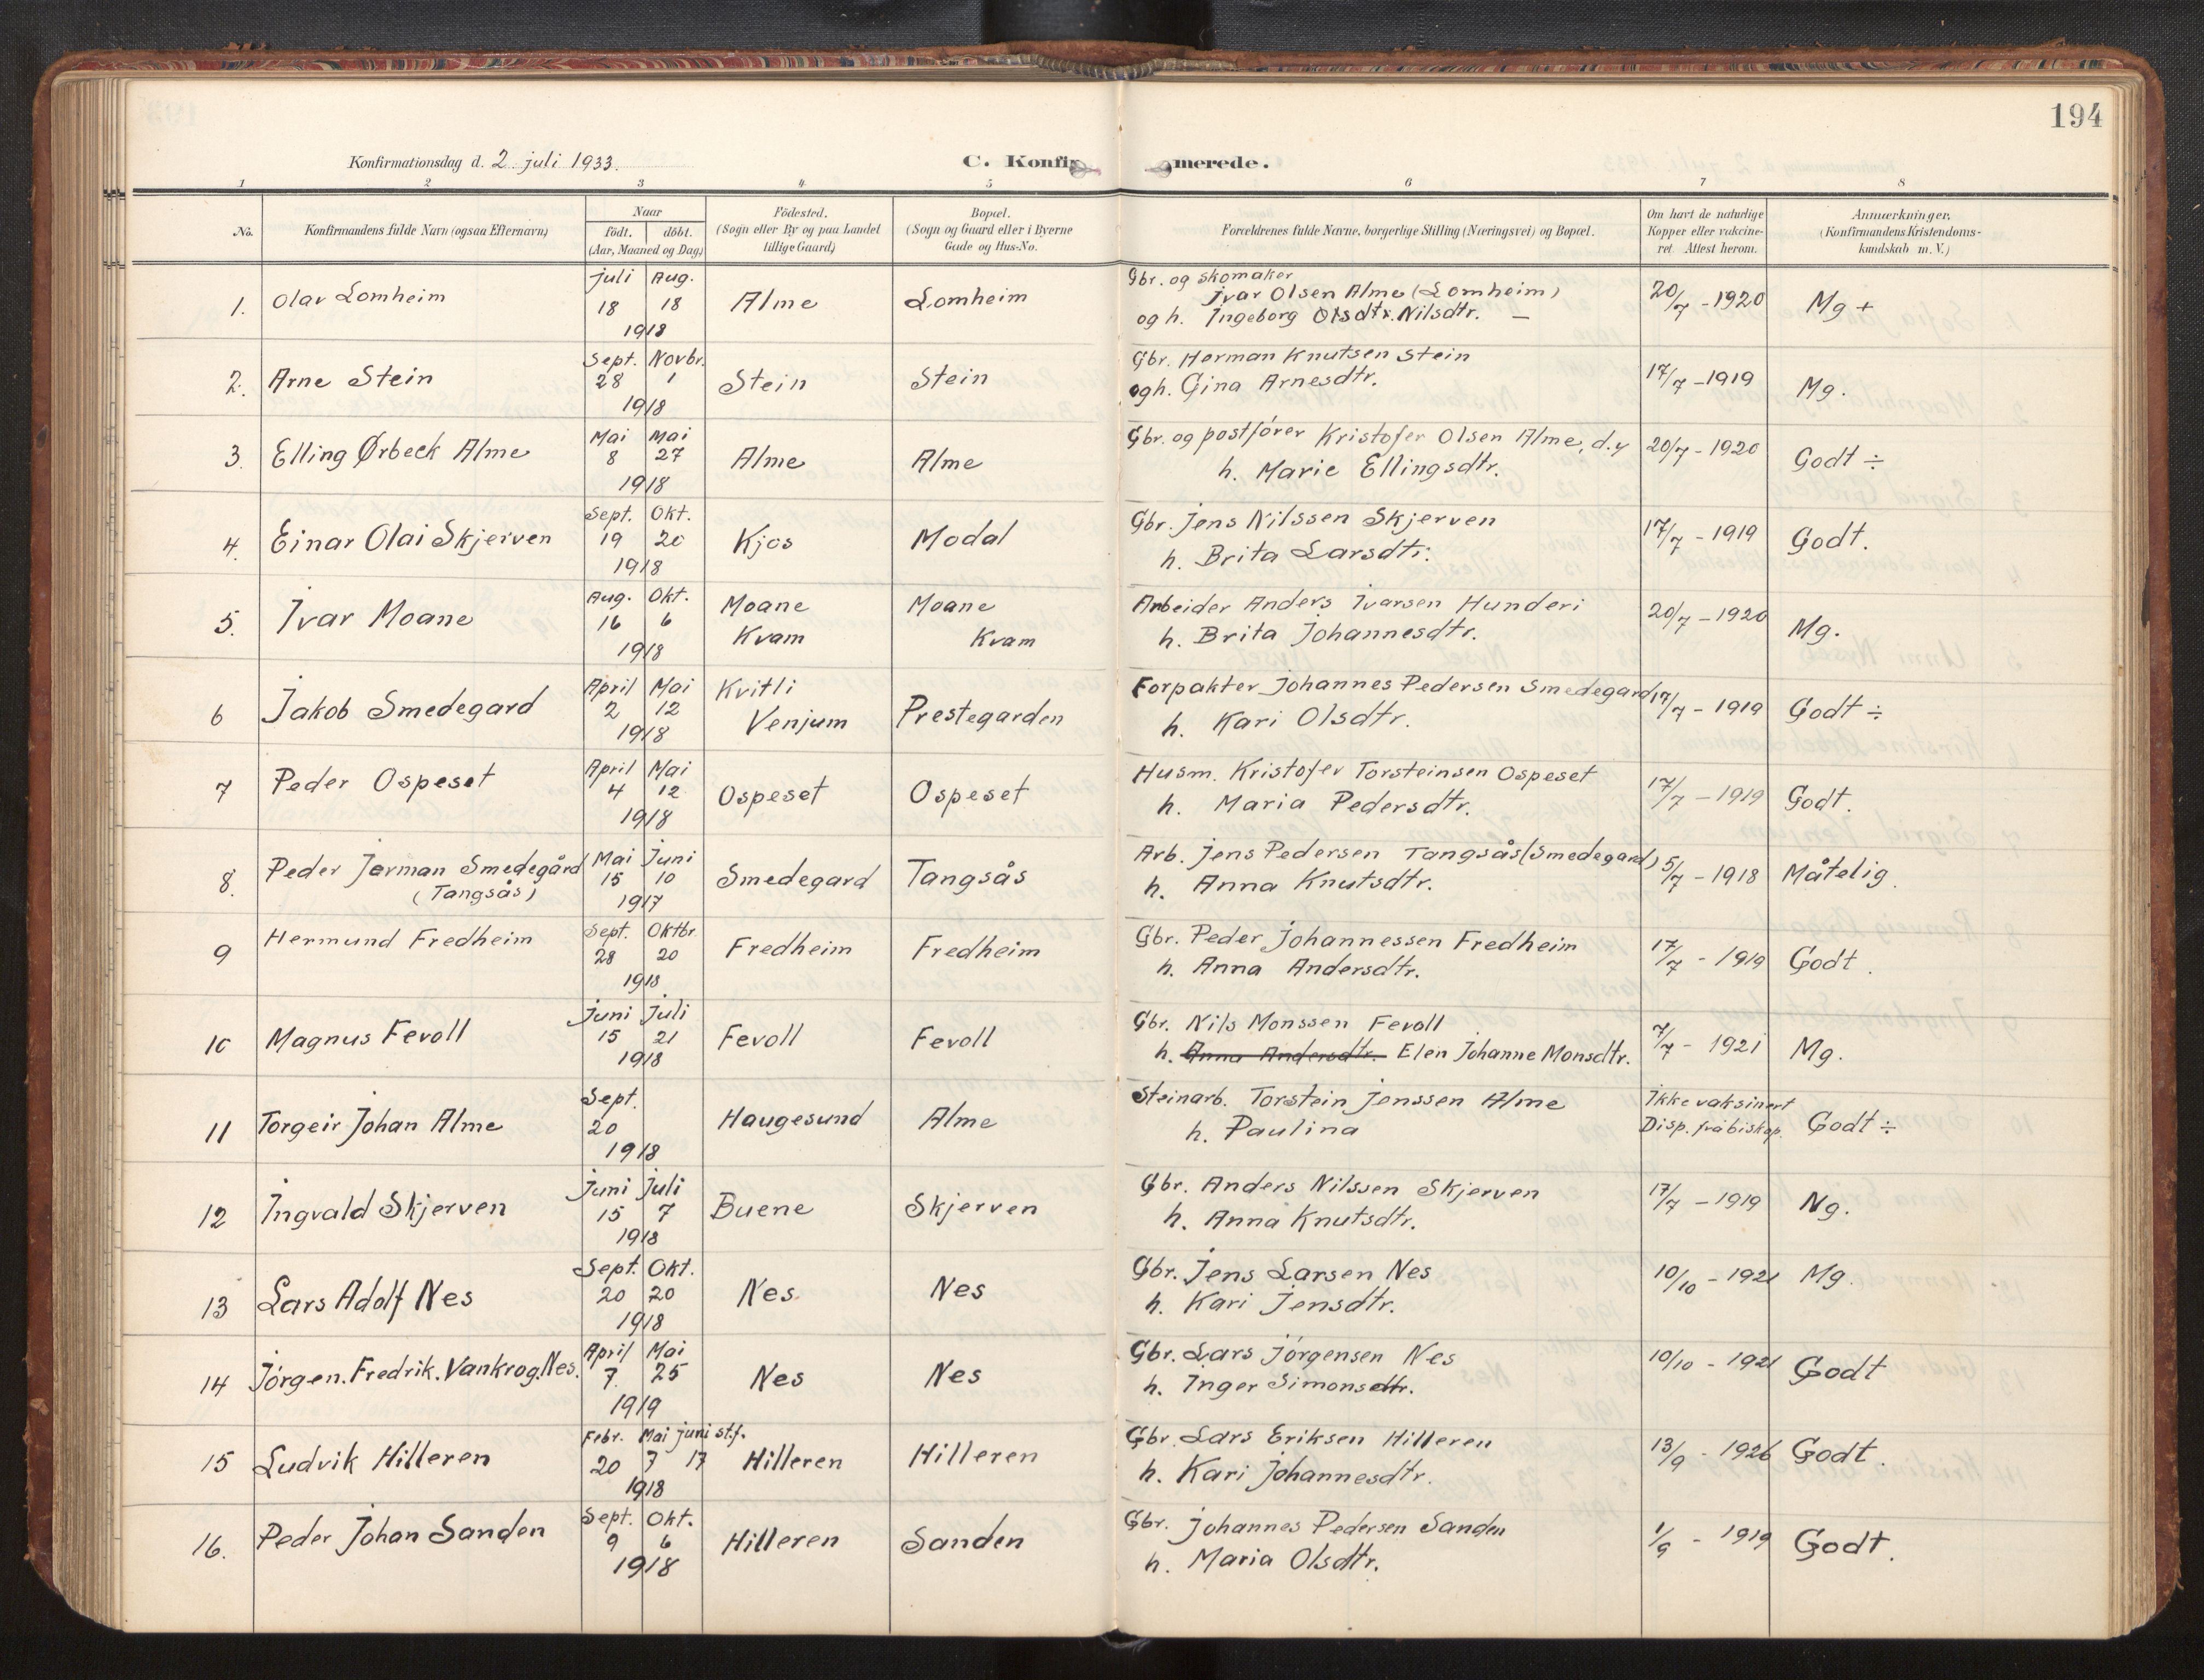 194
Konfirmationsdag d. 2. juli 1933.
C. Konfirmerede.
1 2 3 4 5 6 7 8
No.
Konfirmandens fulde Navn (ogsaa Efternavn)
Naar
født. døbt.
(Aar, Maaned og Dag)
Födested.
(Sogn eller By og paa Landet
tillige Gaard)
Bopæl.
(Sogn og Gaard eller i Byerne
Gade og Hus-No.
Forældrenes fulde Navne, borgerlige Stilling (Næringsvei) og Bopæl.
Om havt de naturlige
Kopper eller vakcine-
ret Attest herom.
Anmærkninger.
(Konfirmandens Kristendoms-
kundskab m.V.)
1. Olav Lomheim
juli Aug.
18 18
1918
Alme
Lomheim
Gbr. og skomaker
Ivar Olsen Alme (Lomheim)
og h. Ingeborg Olsdtr. Nilsdtr. —
20/7 - 1920
Mg +
2. Arne Stein
Sept. Novbr.
28 1
1918
Stein
Stein
Gbr. Herman Knutsen Stein
og h. Gina Arnesdtr.
17/7 - 1919
Mg.
3. Elling Ørbeck Alme
Mai Mai
8 27
1918
Alme
Alme
Gbr. og postfører Kristofer Olsen Alme, d.y
h. Marie Ellingsdtr.
20/7 - 1920
Godt ÷
4. Einar Olai Skjerven
Sept. Okt.
19 20
1918
Kjos
Modal
Gbr. Jens Nilssen Skjerven
h. Brita Larsdtr.
17/7 - 1919
Godt.
5. Ivar Moane
Aug. Okt.
16 6
1918
Moane
Kvam
Moane
Kvam
Arbeider Anders Ivarsen Hunderi
h. Brita Johannesdtr.
20/7 - 1920
Mg.
6 Jakob Smedegard
April Mai
2 12
1918
Kvitli
Venjum
Prestegarden
Forpakter Johannes Pedersen Smedegard
h. Kari Olsdtr.
17/7 - 1919
Godt ÷
7 Peder Ospeset
April Mai
4 12
1918
Ospeset
Ospeset
Husm. Kristofer Torsteinsen Ospeset
h. Maria Pedersdtr.
17/7 - 1919
Godt.
8. Peder Jerman Smedegård
(Tangsås)
Mai Juni
15 10
1917
Smedegard
Tangsås
Arb. Jens Pedersen Tangsås (Smedegard)
h. Anna Knutsdtr.
5/7 - 1918
Måtelig.
9 Hermund Fredheim
Sept. Oktbr.
28 20
1918
Fredheim
Fredheim
Gbr. Peder Johannessen Fredheim
h. Anna Andersdtr.
17/7 - 1919
Godt.
10 Magnus Fevoll
Juni Juli
15 21
1918
Fevoll
Fevoll
Gbr. Nils Monssen Fevoll
h. Anna Andersdtr. Elen Johanne Monsdtr.
7/7 - 1921
Mg.
11 Torgeir Johan Alme
Sept.
20
1918
Haugesund
Alme
Steinarb. Torstein Jenssen Alme
h. Paulina
Ikke vaksinert
Disp. frå biskop.
Godt ÷
12 Ingvald Skjerven
Juni Juli
15 7
1918
Buene
Skjerven
Gbr. Anders Nilssen Skjerven
h. Anna Knutsdtr.
17/7 - 1919
Ng.
13 Lars Adolf Nes
Sept. Okt.
20 20
1918
Nes.
Nes
Gbr. Jens Larsen Nes
h. Kari Jensdtr.
10/10 - 1921
Mg.
14 Jørgen. Fredrik. Vankrog. Nes.
April Mai
7 25
1919
Nes
Nes
Gbr. Lars Jørgensen Nes
h. Inger Simonsdtr.
10/10 - 1921
Godt
15 Ludvik Hilleren
Febr. Mai juni st.f.
20 7 17
1918
Hilleren
Hilleren
Gbr. Lars Eriksen Hilleren
h. Kari Johannesdtr.
13/9 - 1926
Godt.
16. Peder Johan Sanden
Sept. Okt.
9 6
1918
Hilleren
Sanden
Gbr. Johannes Pedersen Sanden
h. Maria Olsdtr.
1/9 - 1919
Godt.